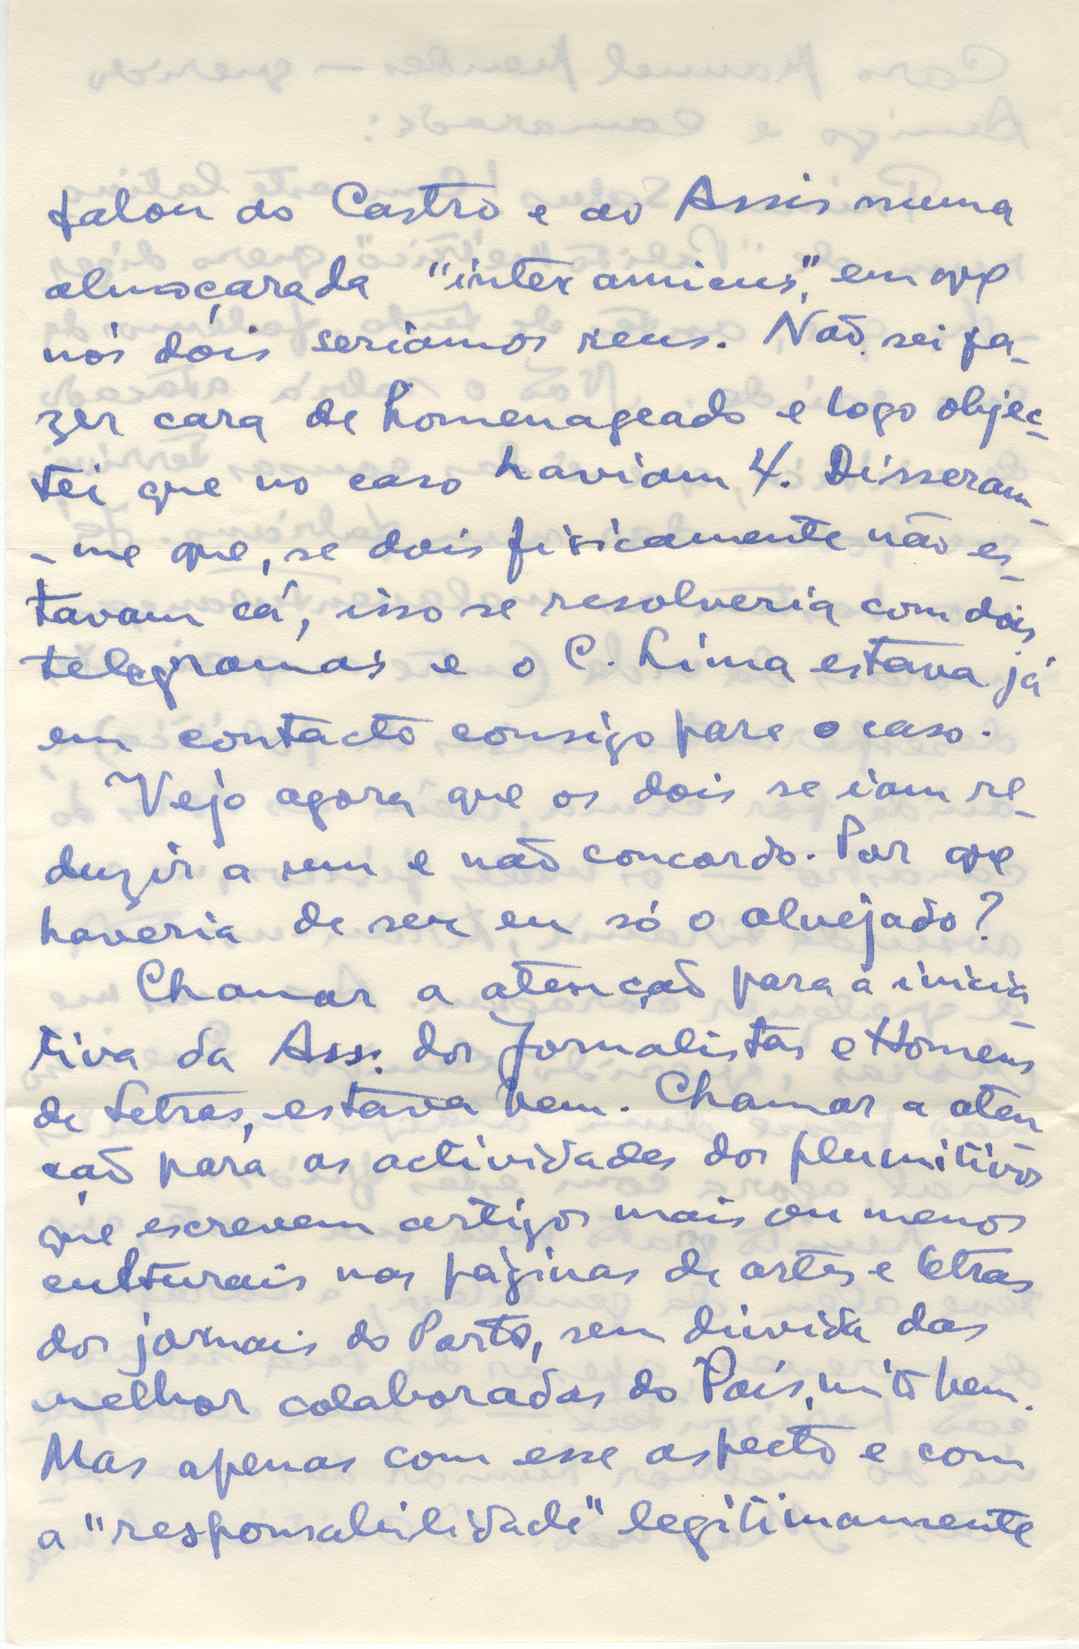 falou do Castro e do Assis numa
almoçarada "inter amicus", em que
nós dóis seriamos reus. Não sei fa-
zer cara de homenageado e logo objec-
tei que no caso haviam 4. Disseram-
-me que, se dois fisicamente não es-
tavam cá, isso se resolveria com dois
telegramas e o C. Lima estava já
em contacto consigo para o caso.
Vejo agora que os dois se iam re-
duzir a um e não concordo. Por que
haveria de ser eu só o alvejado?
Chamar a atenção para a inicia-
tiva da Ass. dos Jornalistas e Homens
de Letras, estava bem. Chamar a aten
ção para as actividades dos plumitivos
que escrevem artigos mais ou menos
culturais nas páginas de artes e letras
dos jornais do Porto, sem dúvida das
melhor colaboradas do País, mtº bem.
Mas apenas com esse aspecto e com
a "responsabilidade" legitimamente